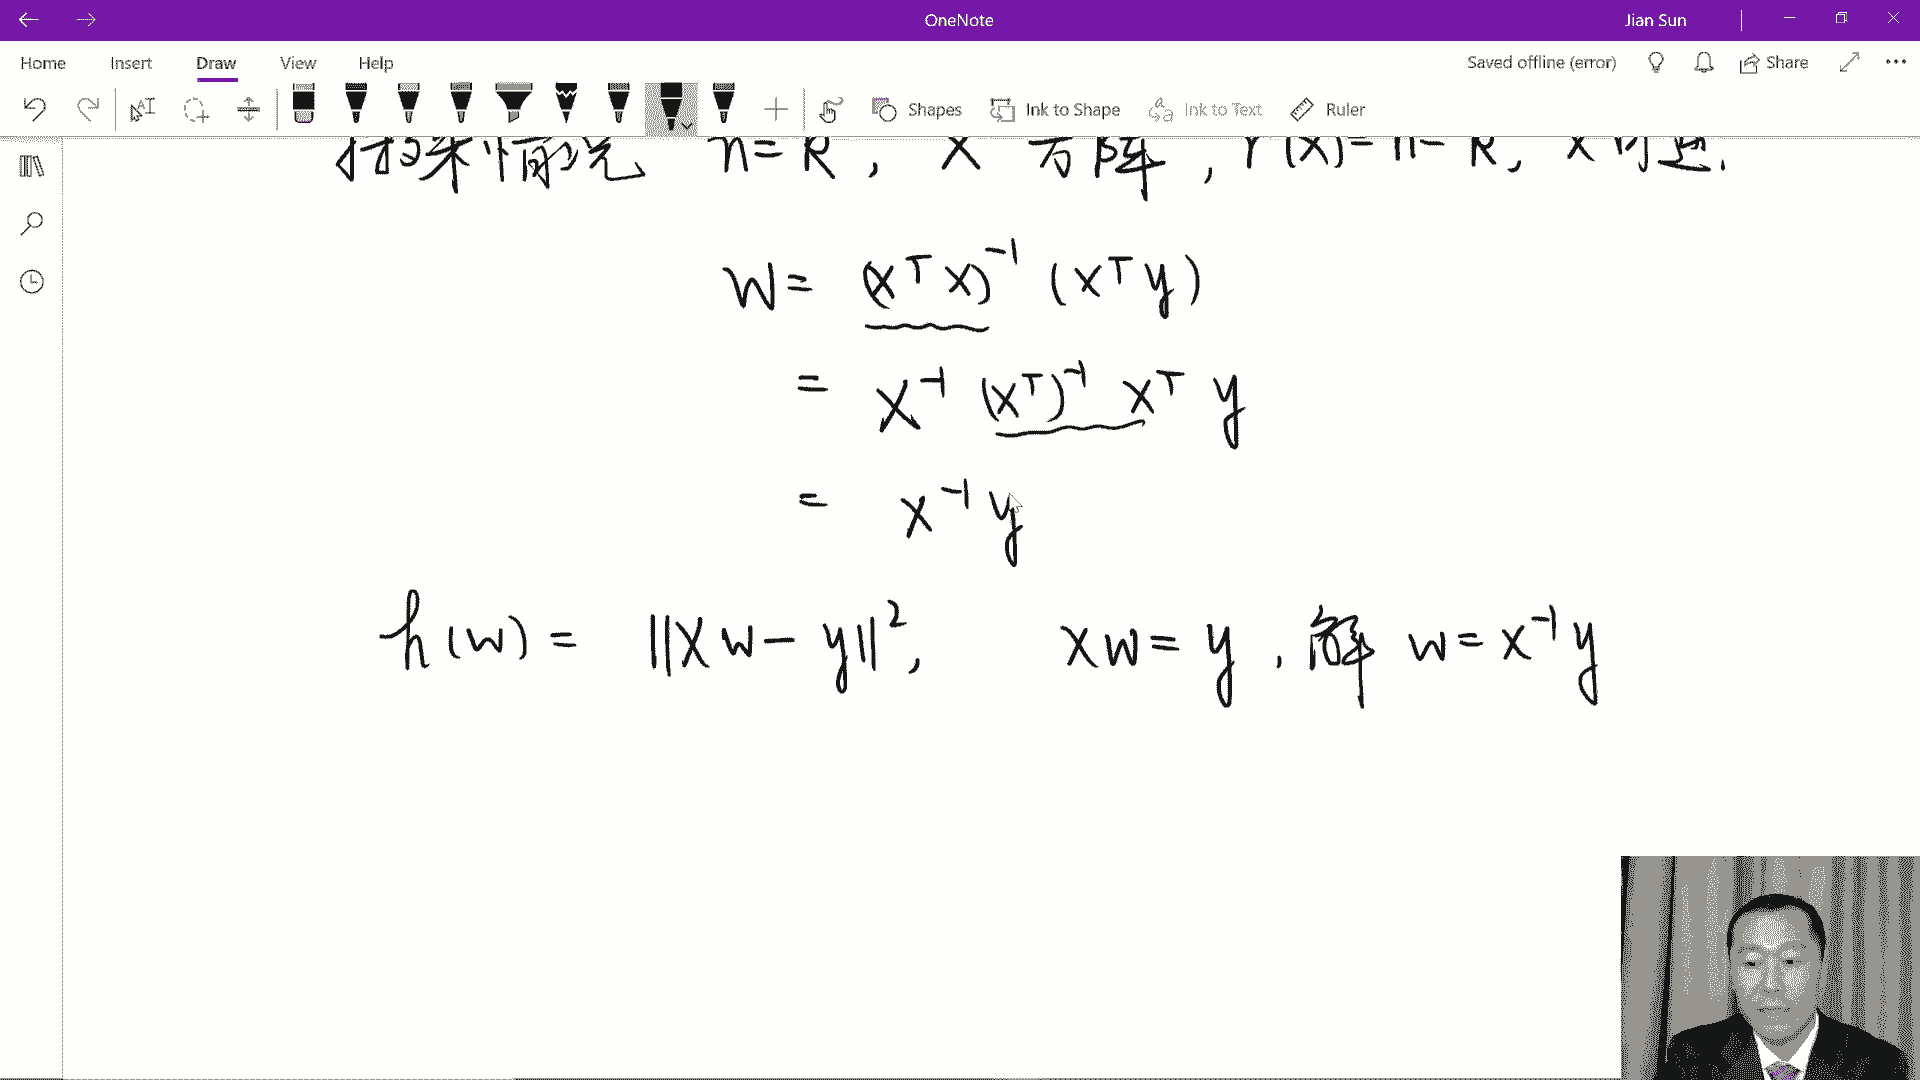 OneNote
Jian Sun
Home Insert Draw View Help
Saved offline (error) Share
Shapes Ink to Shape Ink to Text Ruler
情况 n = k , X 方阵 , r(X) = n = k , X 可逆.
W = (X^T X)^-1 (X^T y)
= X^-1 (X^T)^-1 X^T y
= X^-1 y
h(w) = ||Xw - y||^2 , Xw = y , 解 w = X^-1 y